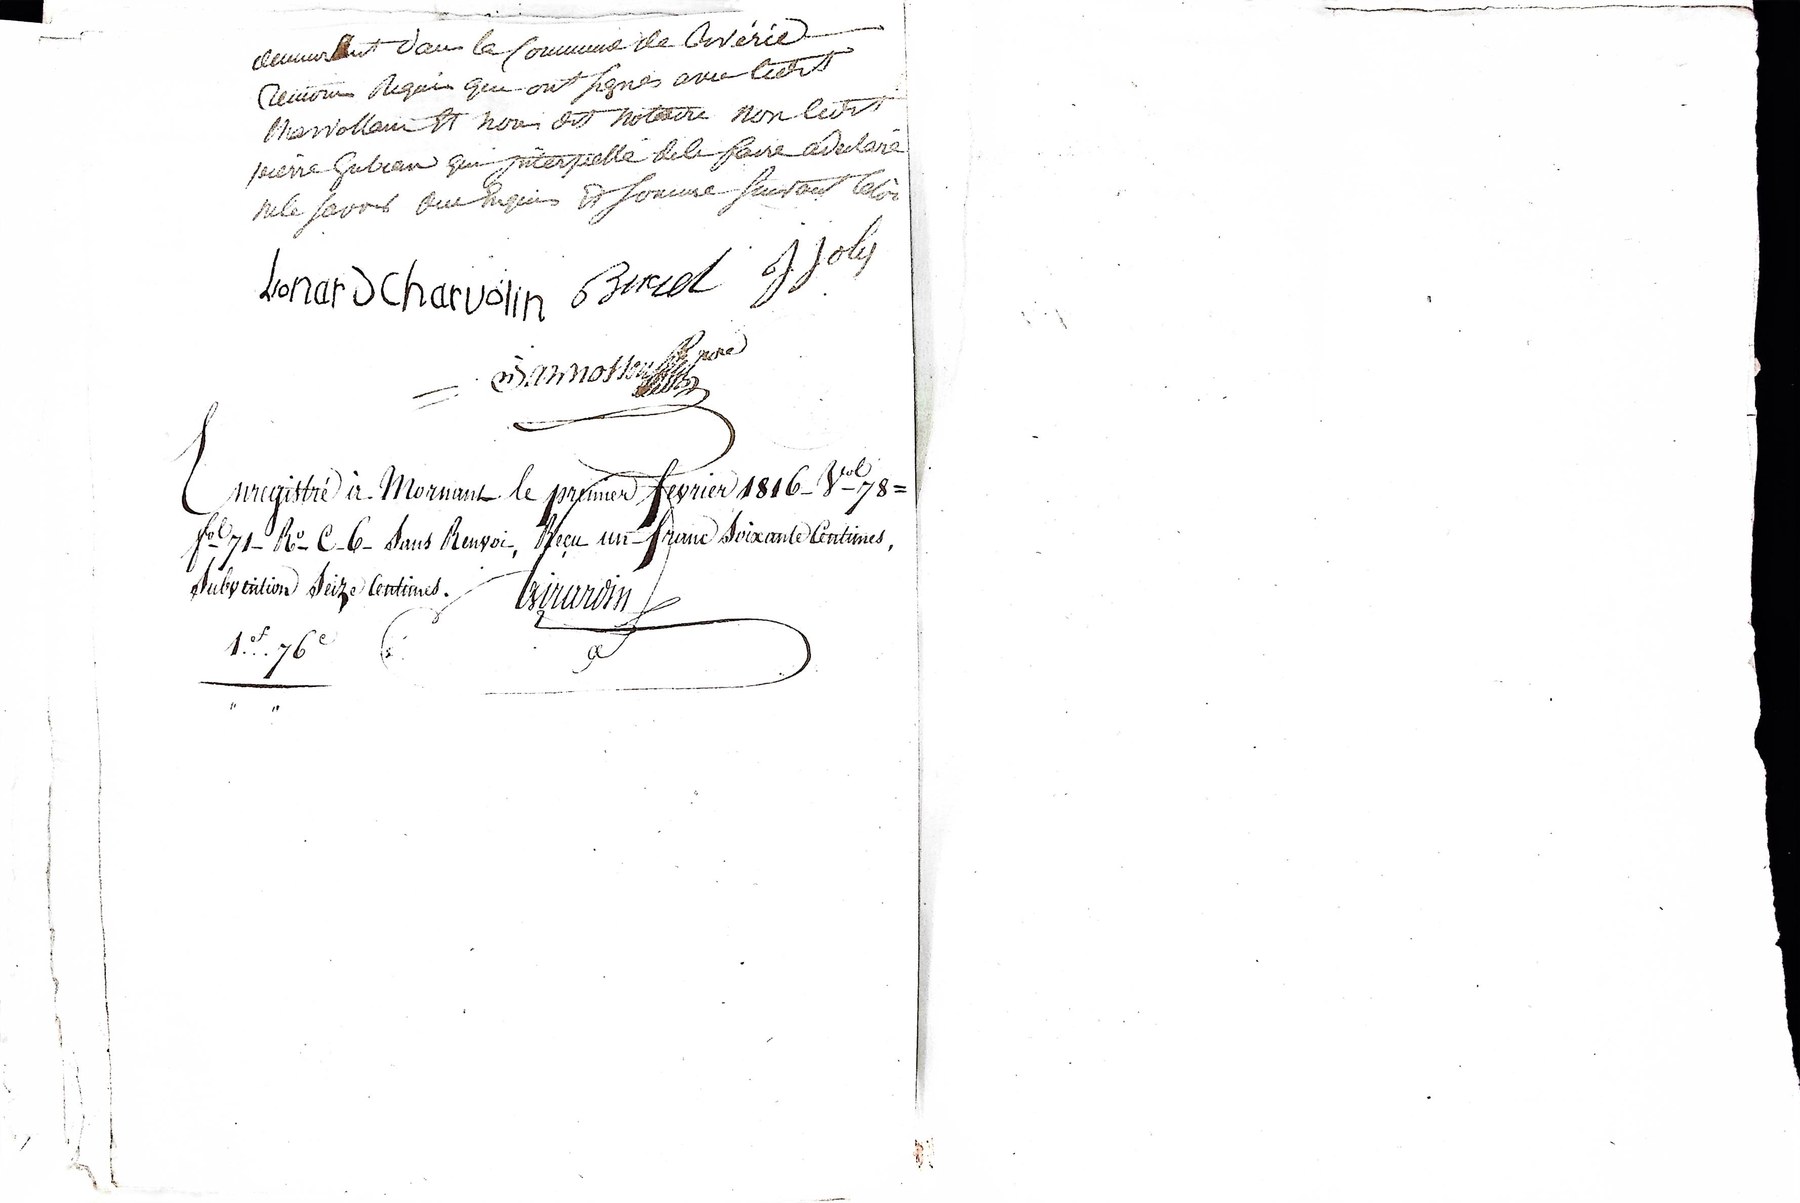 demeurant dans la Commune de Rivérie
temoins Requis qui ont signés avec ledit
Charvollin Et nous dit notaire non ledit
pierre Gubian qui jnterpellé de le faire a declaré
ne le savoir due Requis Et somme suivant la loi
Lionard Charvolin Burel J Joly
nore
Enregistré à Mornant le premier fevrier 1816 - Vol - 78 =
fol 71 - Ro - C - 6 - Sans Renvoi, Reçu un franc Soixante Centimes,
Subvention Seize Centimes. Girardin
1.f. 76c
" "